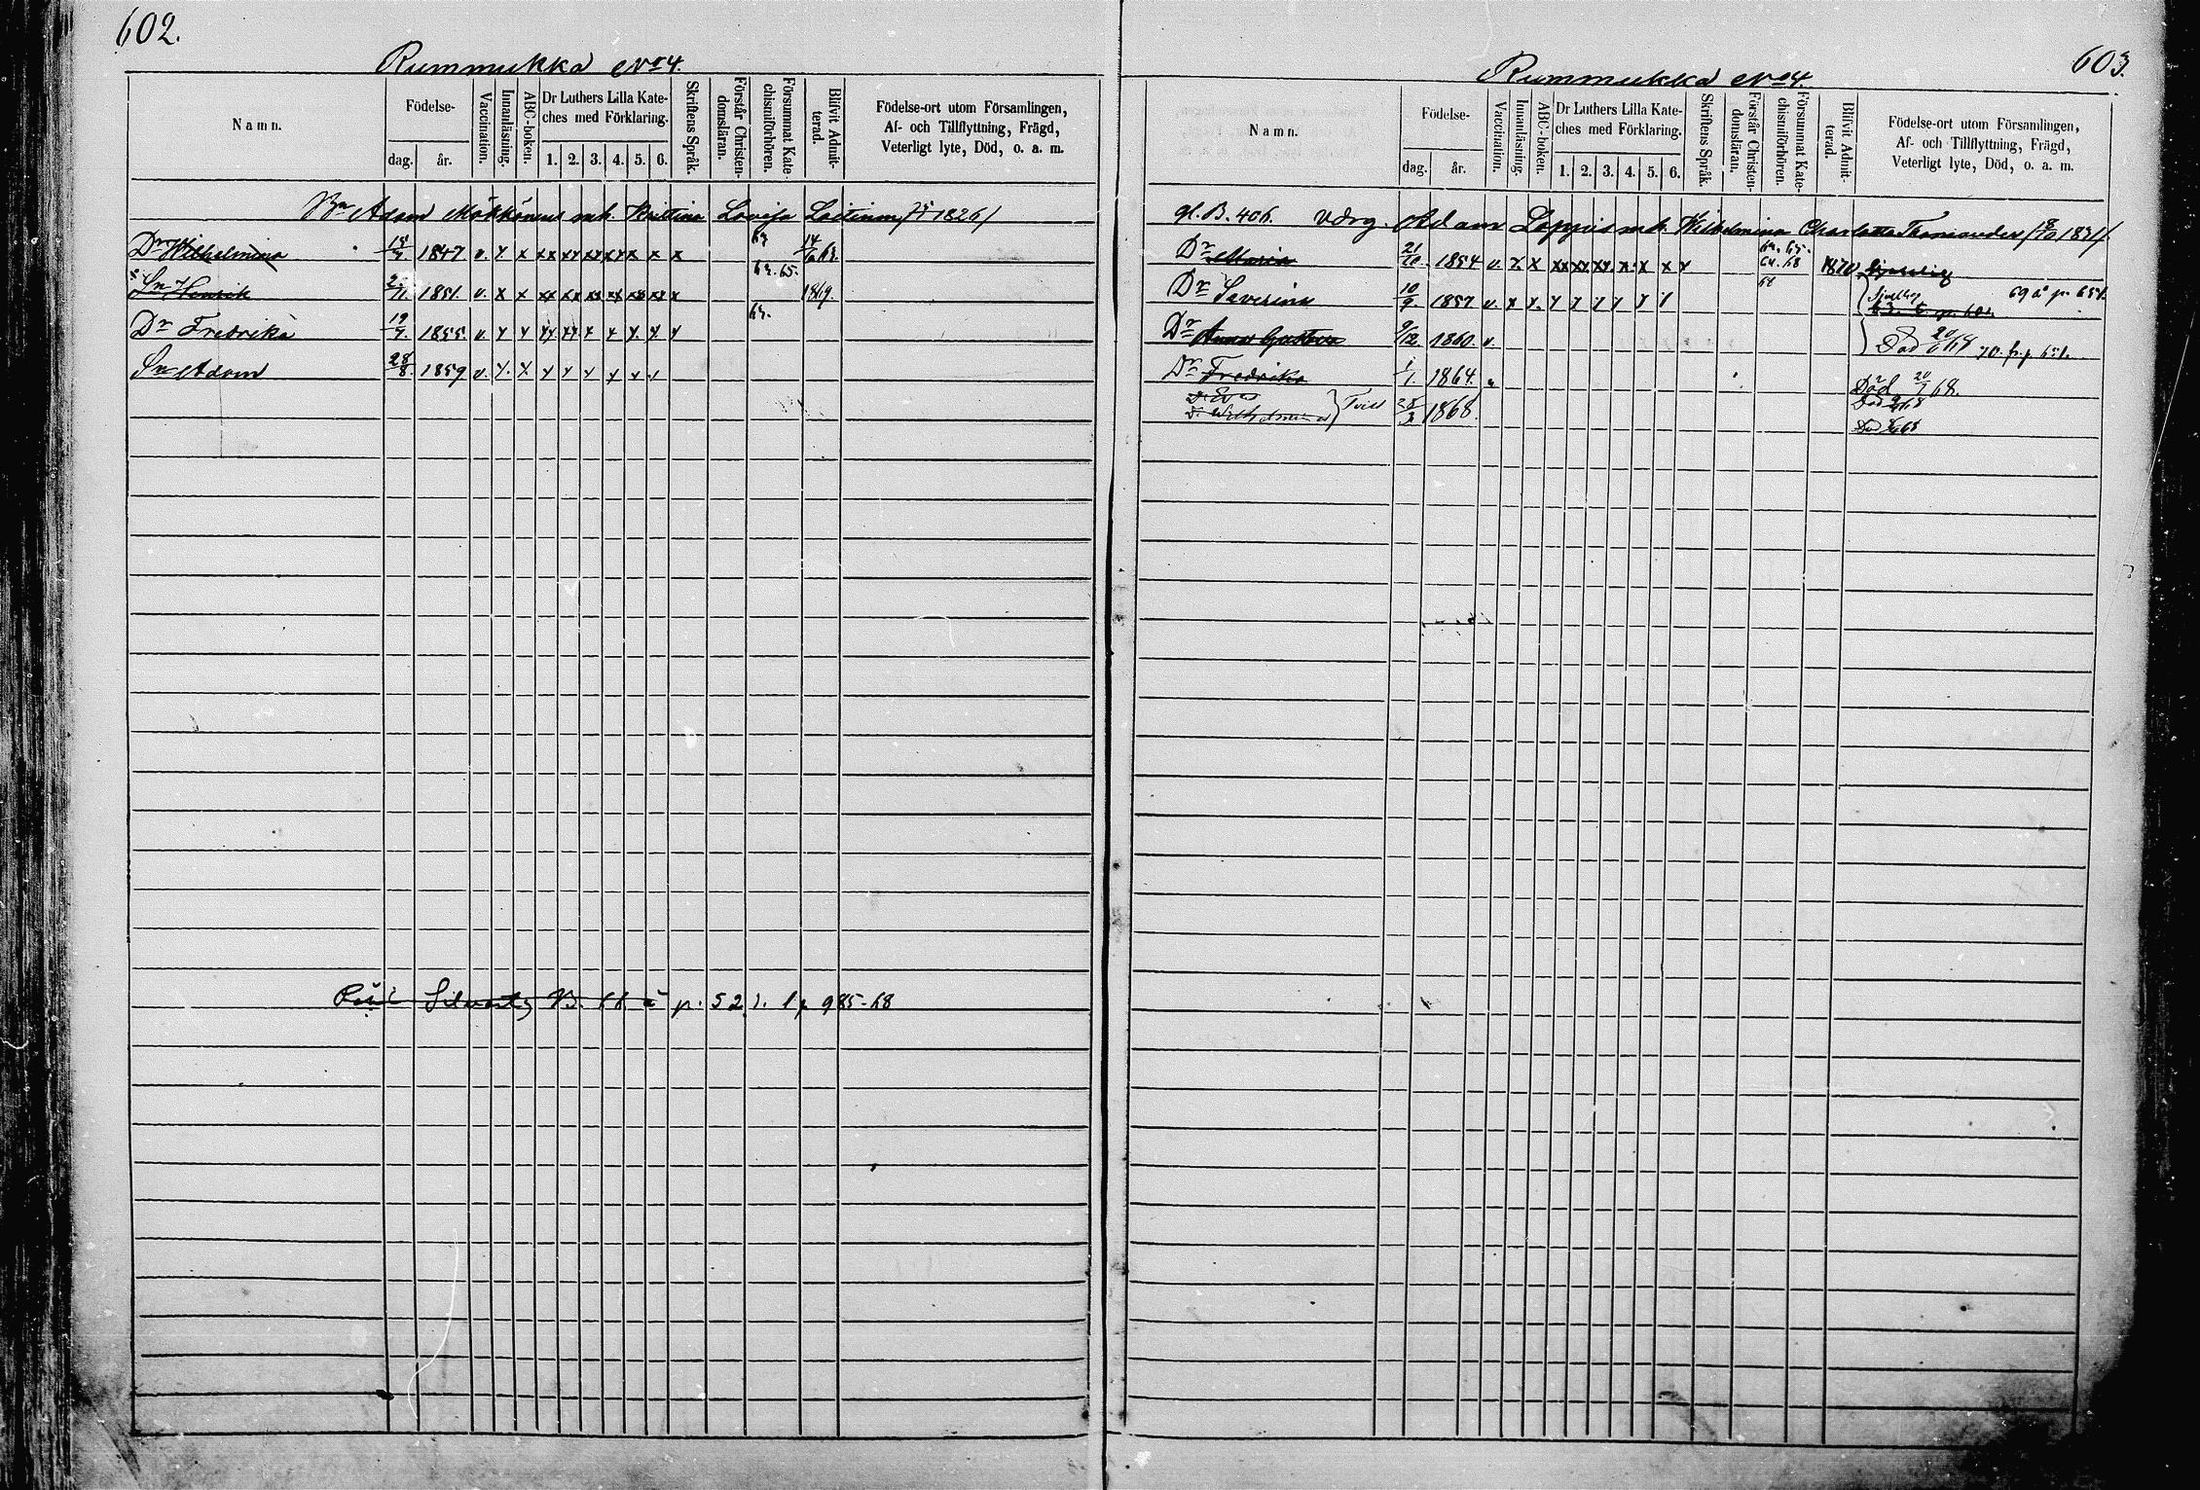 602.
Rummukka No 4.
Namn.
Födelse-
dag. år.
Vaccination.
Innanläsning.
ABC-boken.
Dr Luthers Lilla Kate-
ches med Förklaring.
1. 2. 3. 4. 5. 6.
Skriftens Språk.
Förstår Christen-
domsläran.
Försummat Kate-
chismiförhören.
Blifvit Admit-
terad.
Födelse-ort utom Församlingen,
Af- och Tillflyttning, Frägd,
Veterligt lyte, Död, o. a. m.
Adam Mökkönens enk. Kristina Lovisa 1826/
Dr Wilhelmina 1847 v. x x xx xx xx xx x x x 63
Sn Henrik 1851. v. x x xx xx xx xx xx xx x 63. 65. 1869.
Dr Fredrika 19 1855. v. x x xx xx x x x. x. x 63.
Sn Adam 28/8 1859 v. x. x x x x x x x
p. 52 985-68
603.
Rummukka No 4.
Namn.
Födelse-
dag. år.
Vaccination.
Innanläsning.
ABC-boken.
Dr Luthers Lilla Kate-
ches med Förklaring.
1. 2. 3. 4. 5. 6.
Skriftens Språk.
Förstår Christen-
domsläran.
Försummat Kate-
chismiförhören.
Blifvit Admit-
terad.
Födelse-ort utom Församlingen,
Af- och Tillflyttning, Frägd,
Veterligt lyte, Död, o. a. m.
gl. B. 406. Adam Loppis enk. Wilhelmina Charlotta 1831/
Dr Maria 21/10 1854 v. x x xx xx xx x x x x 64. 68 1870
Dr Severina 10/9 1857 v. x x. x x x x x 68
69 p. 651.
Dr Anna Gustava 9/12 1860. v. Död 68 70. p. 651.
Dr Fredrika 1/1 1864. Död 68.
D. Eva
D. Wilhelmina } Tvill 25/3 1868. Död 68
Död 68